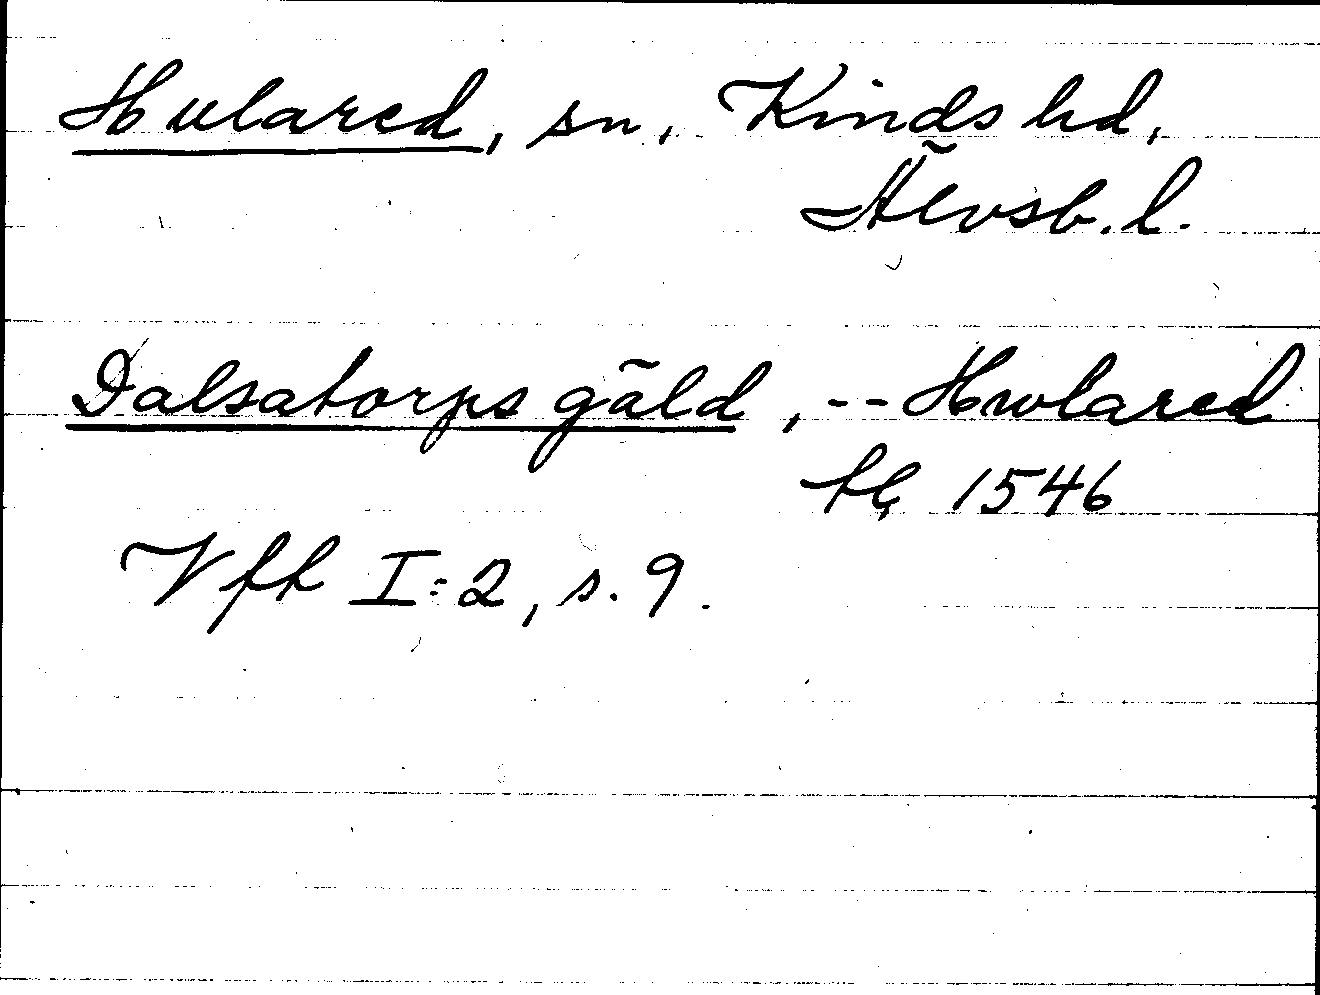 Hulared, sn. Kinds hd,
Älvsb. l.
Dalsatorps gäld, -- Hwlared
1546
Vfh I:2, s. 9.